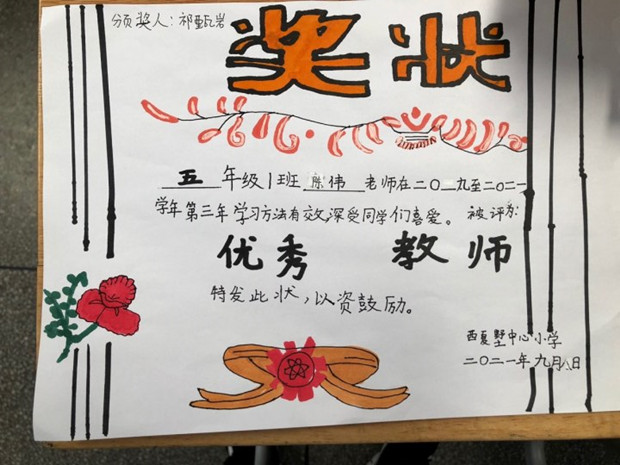 颁奖人：祁甄岩
奖状
五年级1班陈伟老师在二〇一九至二〇二一
学年第三年学习方法有效,深受同学们喜爱。被评为:
优秀 教师
特发此状,以资鼓励。
西夏墅中心小学
二〇二一年九月八日